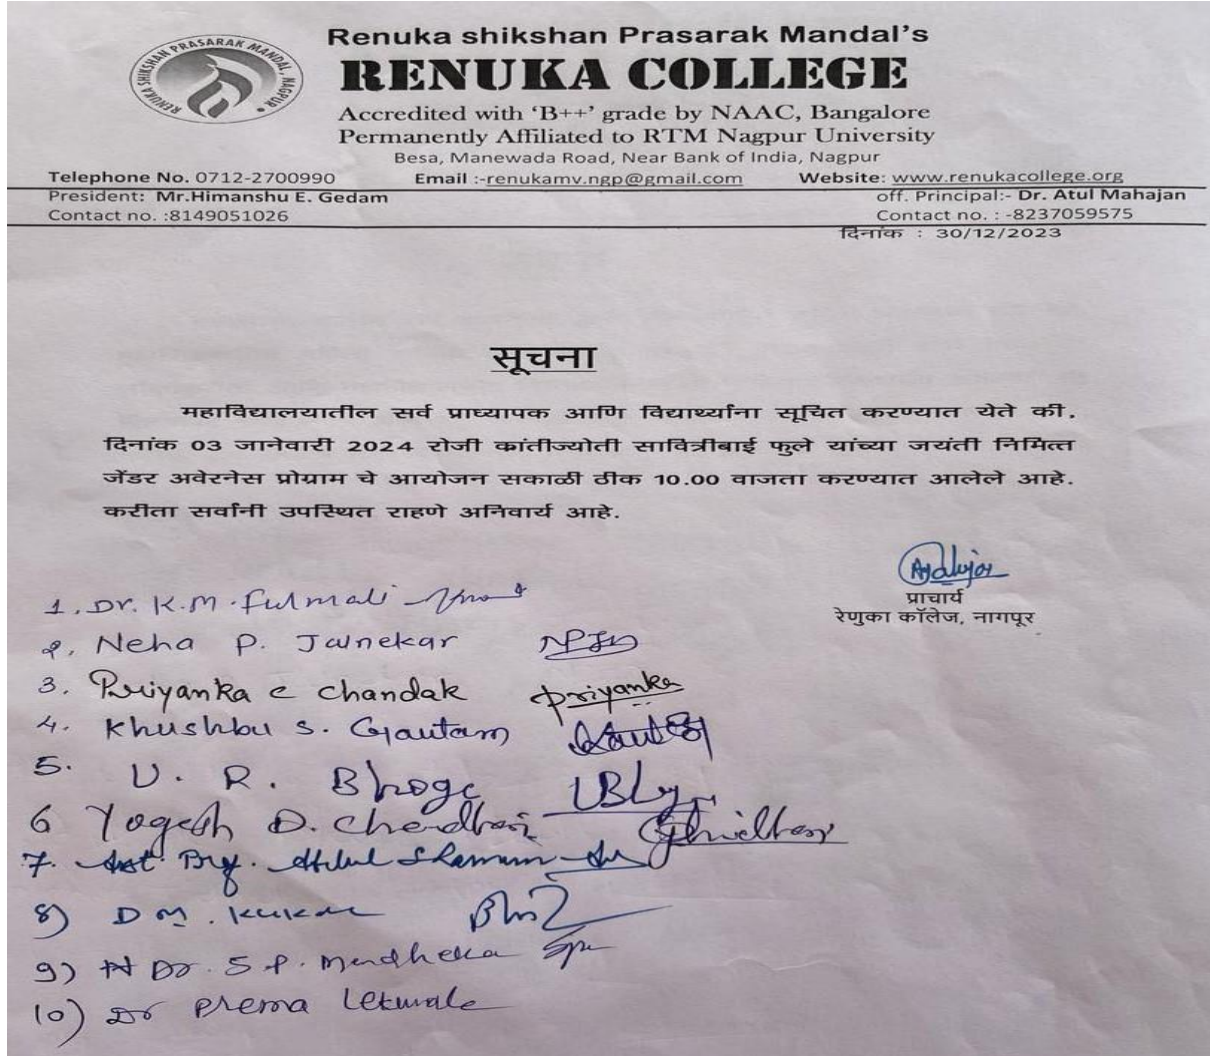 RENUKA SHIKSHAN PRASARAK MANDAL, NAGPUR
Renuka shikshan Prasarak Mandal's
RENUKA COLLEGE
Accredited with 'B++' grade by NAAC, Bangalore
Permanently Affiliated to RTM Nagpur University
Besa, Manewada Road, Near Bank of India, Nagpur
Telephone No. 0712-2700990 Email :-renukamv.ngp@gmail.com Website: www.renukacollege.org
President: Mr.Himanshu E. Gedam off. Principal:- Dr. Atul Mahajan
Contact no. :8149051026 Contact no. : -8237059575
दिनांक : 30/12/2023
सूचना
महाविद्यालयातील सर्व प्राध्यापक आणि विद्यार्थ्यांना सूचित करण्यात येते की.
दिनांक 03 जानेवारी 2024 रोजी कांतीज्योती सावित्रीबाई फुले यांच्या जयंती निमित्त
जेंडर अवेरनेस प्रोग्राम चे आयोजन सकाळी ठीक 10.00 वाजता करण्यात आलेले आहे.
करीता सर्वांनी उपस्थित राहणे अनिवार्य आहे.
प्राचार्य
रेणुका कॉलेज, नागपूर
1. Dr. K.M. Fulmali
2. Neha P. Jalnekar
3. Priyanka C Chandak Priyanka
4. Khushbu S. Gautam
5. U. R. Bhoge
6 Yogesh D.
7. Asst. Prof.
8) D M.
9) Dr. S.P.
10) Dr Prema Lekurwale